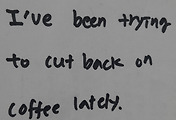 I've been trying
to cut back on
coffee lately.